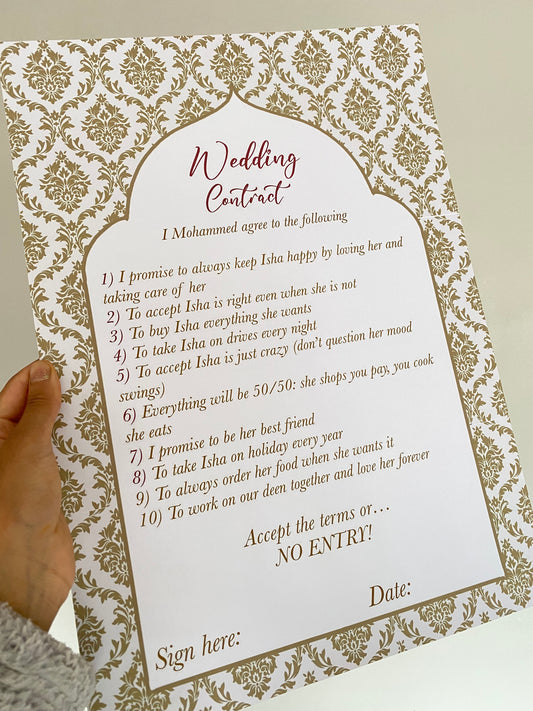 Wedding
Contract
I Mohammed agree to the following
1) I promise to always keep Isha happy by loving her and
taking care of her
2) To accept Isha is right even when she is not
3) To buy Isha everything she wants
4) To take Isha on drives every night
5) To accept Isha is just crazy (don't question her mood
swings)
6) Everything will be 50/50: she shops you pay, you cook
she eats
7) I promise to be her best friend
8) To take Isha on holiday every year
9) To always order her food when she wants it
10) To work on our deen together and love her forever
Accept the terms or...
NO ENTRY!
Date:
Sign here: